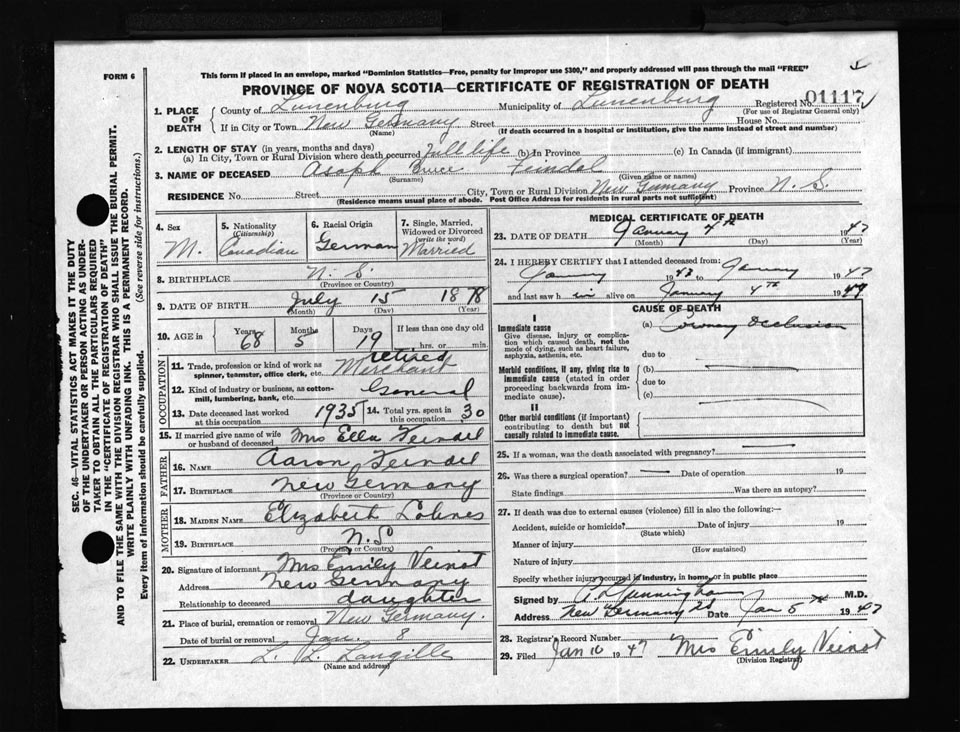 FORM 6
This form if placed in an envelope, marked "Dominion Statistics—Free, penalty for improper use $300," and properly addressed will pass through the mail "FREE"
PROVINCE OF NOVA SCOTIA—CERTIFICATE OF REGISTRATION OF DEATH
1. PLACE OF DEATH County of Lunenburg Municipality of Lunenburg Registered No. 01117
(For use of Registrar General only)
If in City or Town New Germany Street House No.
(Name) (If death occurred in a hospital or institution, give the name instead of street and number)
2. LENGTH OF STAY (in years, months and days)
(a) In City, Town or Rural Division where death occurred Full life (b) In Province (c) In Canada (if immigrant)
3. NAME OF DECEASED Asaph Bruce Feindel
(Surname) (Given name or names)
RESIDENCE No. Street City, Town or Rural Division New Germany Province N. S.
(Residence means usual place of abode. Post Office Address for residents in rural parts not sufficient)
4. Sex M.
5. Nationality (Citizenship) Canadian
6. Racial Origin German
7. Single, Married, Widowed or Divorced (write the word) Married
8. BIRTHPLACE N. S.
(Province or Country)
9. DATE OF BIRTH July 15 1878
(Month) (Day) (Year)
10. AGE in Years 68 Months 5 Days 19 If less than one day old
hrs. or min.
OCCUPATION
11. Trade, profession or kind of work as spinner, teamster, office clerk, etc. retired Merchant
12. Kind of industry or business, as cotton-mill, lumbering, bank, etc. General
13. Date deceased last worked at this occupation 1935 14. Total yrs. spent in this occupation 30
15. If married give name of wife or husband of deceased Mrs Ella Feindel
FATHER
16. NAME Aaron Feindel
17. BIRTHPLACE New Germany
(Province or Country)
MOTHER
18. MAIDEN NAME Elizabeth Lohnes
19. BIRTHPLACE N.S
(Province or Country)
20. Signature of informant Mrs Emily Veinot
Address New Germany
Relationship to deceased daughter
21. Place of burial, cremation or removal New Germany.
Date of burial or removal Jan. 8
22. UNDERTAKER L. L. Langille
(Name and address)
MEDICAL CERTIFICATE OF DEATH
23. DATE OF DEATH January 4th 1947
(Month) (Day) (Year)
24. I HEREBY CERTIFY that I attended deceased from:
January 1943 to January 1947
and last saw him alive on January 4th 1947
CAUSE OF DEATH
I
Immediate cause (a) Coronary Occlusion
Give disease, injury or complication which caused death, not the mode of dying, such as heart failure, asphyxia, asthenia, etc. due to
Morbid conditions, if any, giving rise to immediate cause (stated in order proceeding backwards from immediate cause). (b)
due to
(c)
II
Other morbid conditions (if important) contributing to death but not causally related to immediate cause.
25. If a woman, was the death associated with pregnancy?
26. Was there a surgical operation? Date of operation 19
State findings Was there an autopsy?
27. If death was due to external causes (violence) fill in also the following:—
Accident, suicide or homicide? Date of injury 19
(State which)
Manner of injury
(How sustained)
Nature of injury
Specify whether injury occurred in industry, in home, or in public place
Signed by Cunningham M.D.
Address New Germany Date Jan 5 1947
28. Registrar's Record Number
29. Filed Jan 10 1947 Mrs Emily Veinot
(Division Registrar)
SEC. 46—VITAL STATISTICS ACT MAKES IT THE DUTY
OF THE UNDERTAKER OR PERSON ACTING AS UNDER-
TAKER TO OBTAIN ALL THE PARTICULARS REQUIRED
IN THE "CERTIFICATE OF REGISTRATION OF DEATH"
AND TO FILE THE SAME WITH THE DIVISION REGISTRAR WHO SHALL ISSUE THE BURIAL PERMIT.
WRITE PLAINLY WITH UNFADING INK. THIS IS A PERMANENT RECORD.
Every item of information should be carefully supplied. (See reverse side for instructions.)